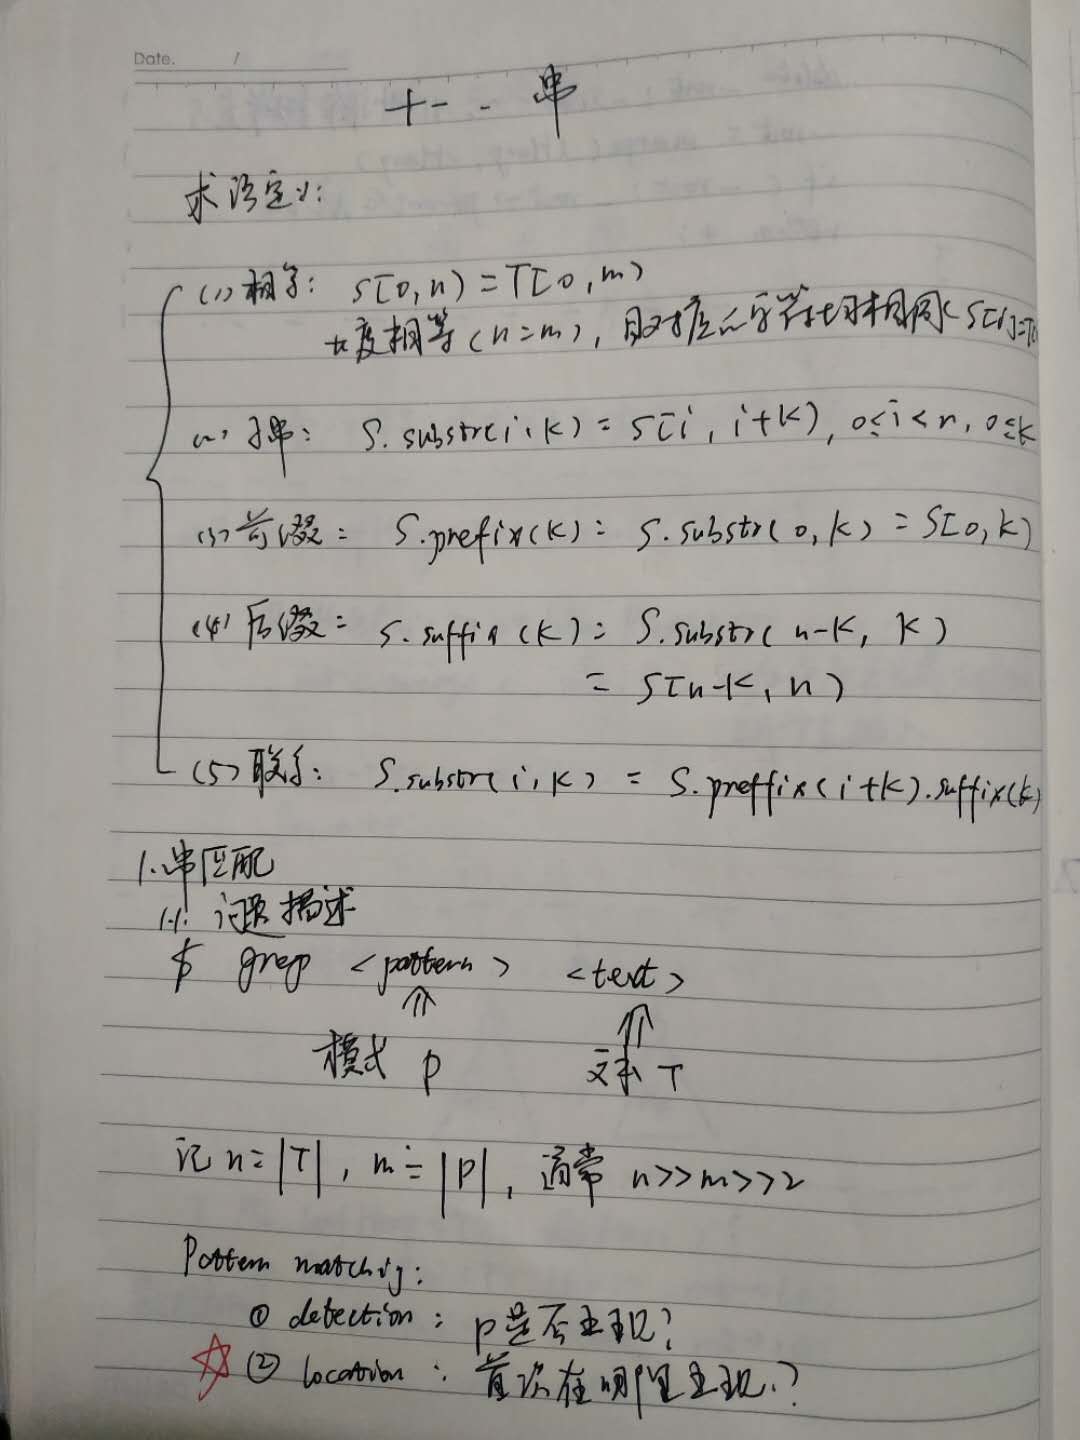 Date. /
十一. 串
术语定义:
(1) 相等: S[0,n) = T[0,m)
长度相等(n=m), 且对应的字符均相同(S[i]=T[i
(2) 子串: S.substr(i,k) = S[i, i+k), 0≤i<n, 0≤k
(3) 前缀: S.prefix(k) = S.substr(0,k) = S[0,k)
(4) 后缀: S.suffix(k) = S.substr(n-k, k)
= S[n-k, n)
(5) 联系: S.substr(i,k) = S.preffix(i+k).suffix(k)
1. 串匹配
1.1. 问题描述
$ grep <pattern> <text>
⇑ ⇑
模式 P 文本 T
记 n=|T|, m=|P|, 通常 n>>m>>2
Pattern matching:
① detection: P是否出现?
☆ ② location: 首次在哪里出现?